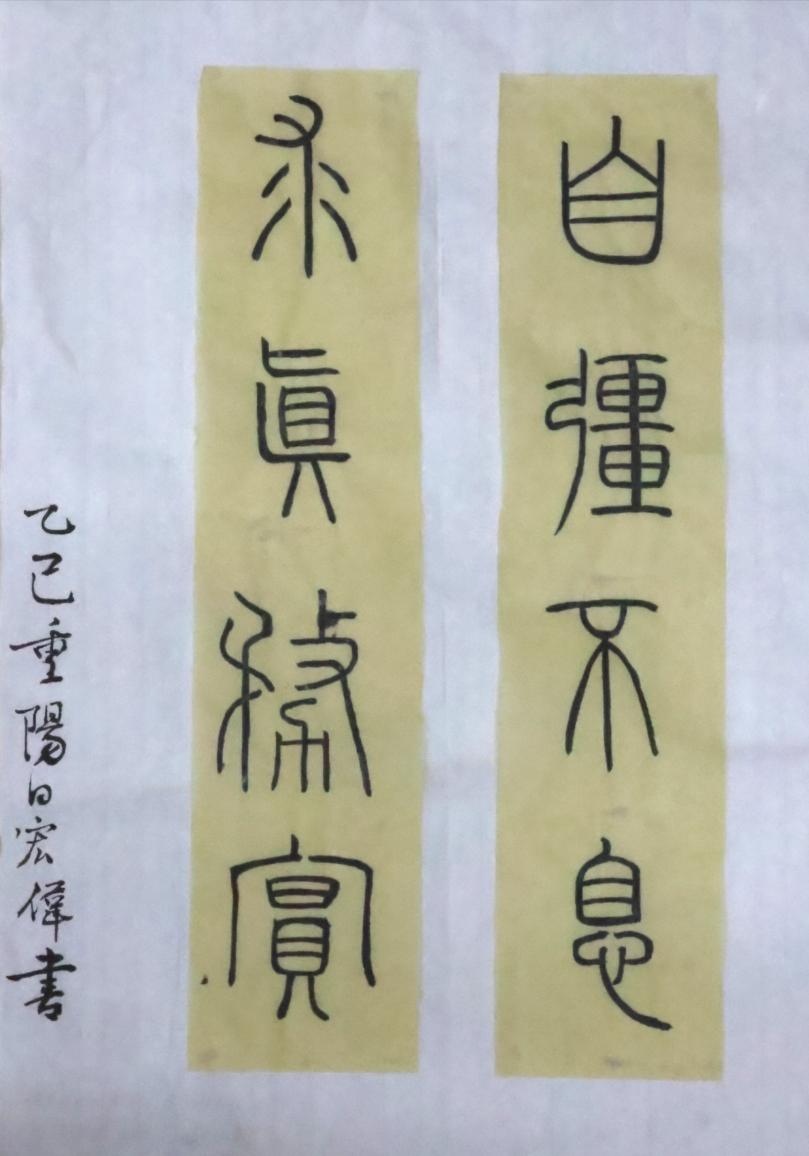 自彊不息
求真務實
乙巳重陽日宏偉書